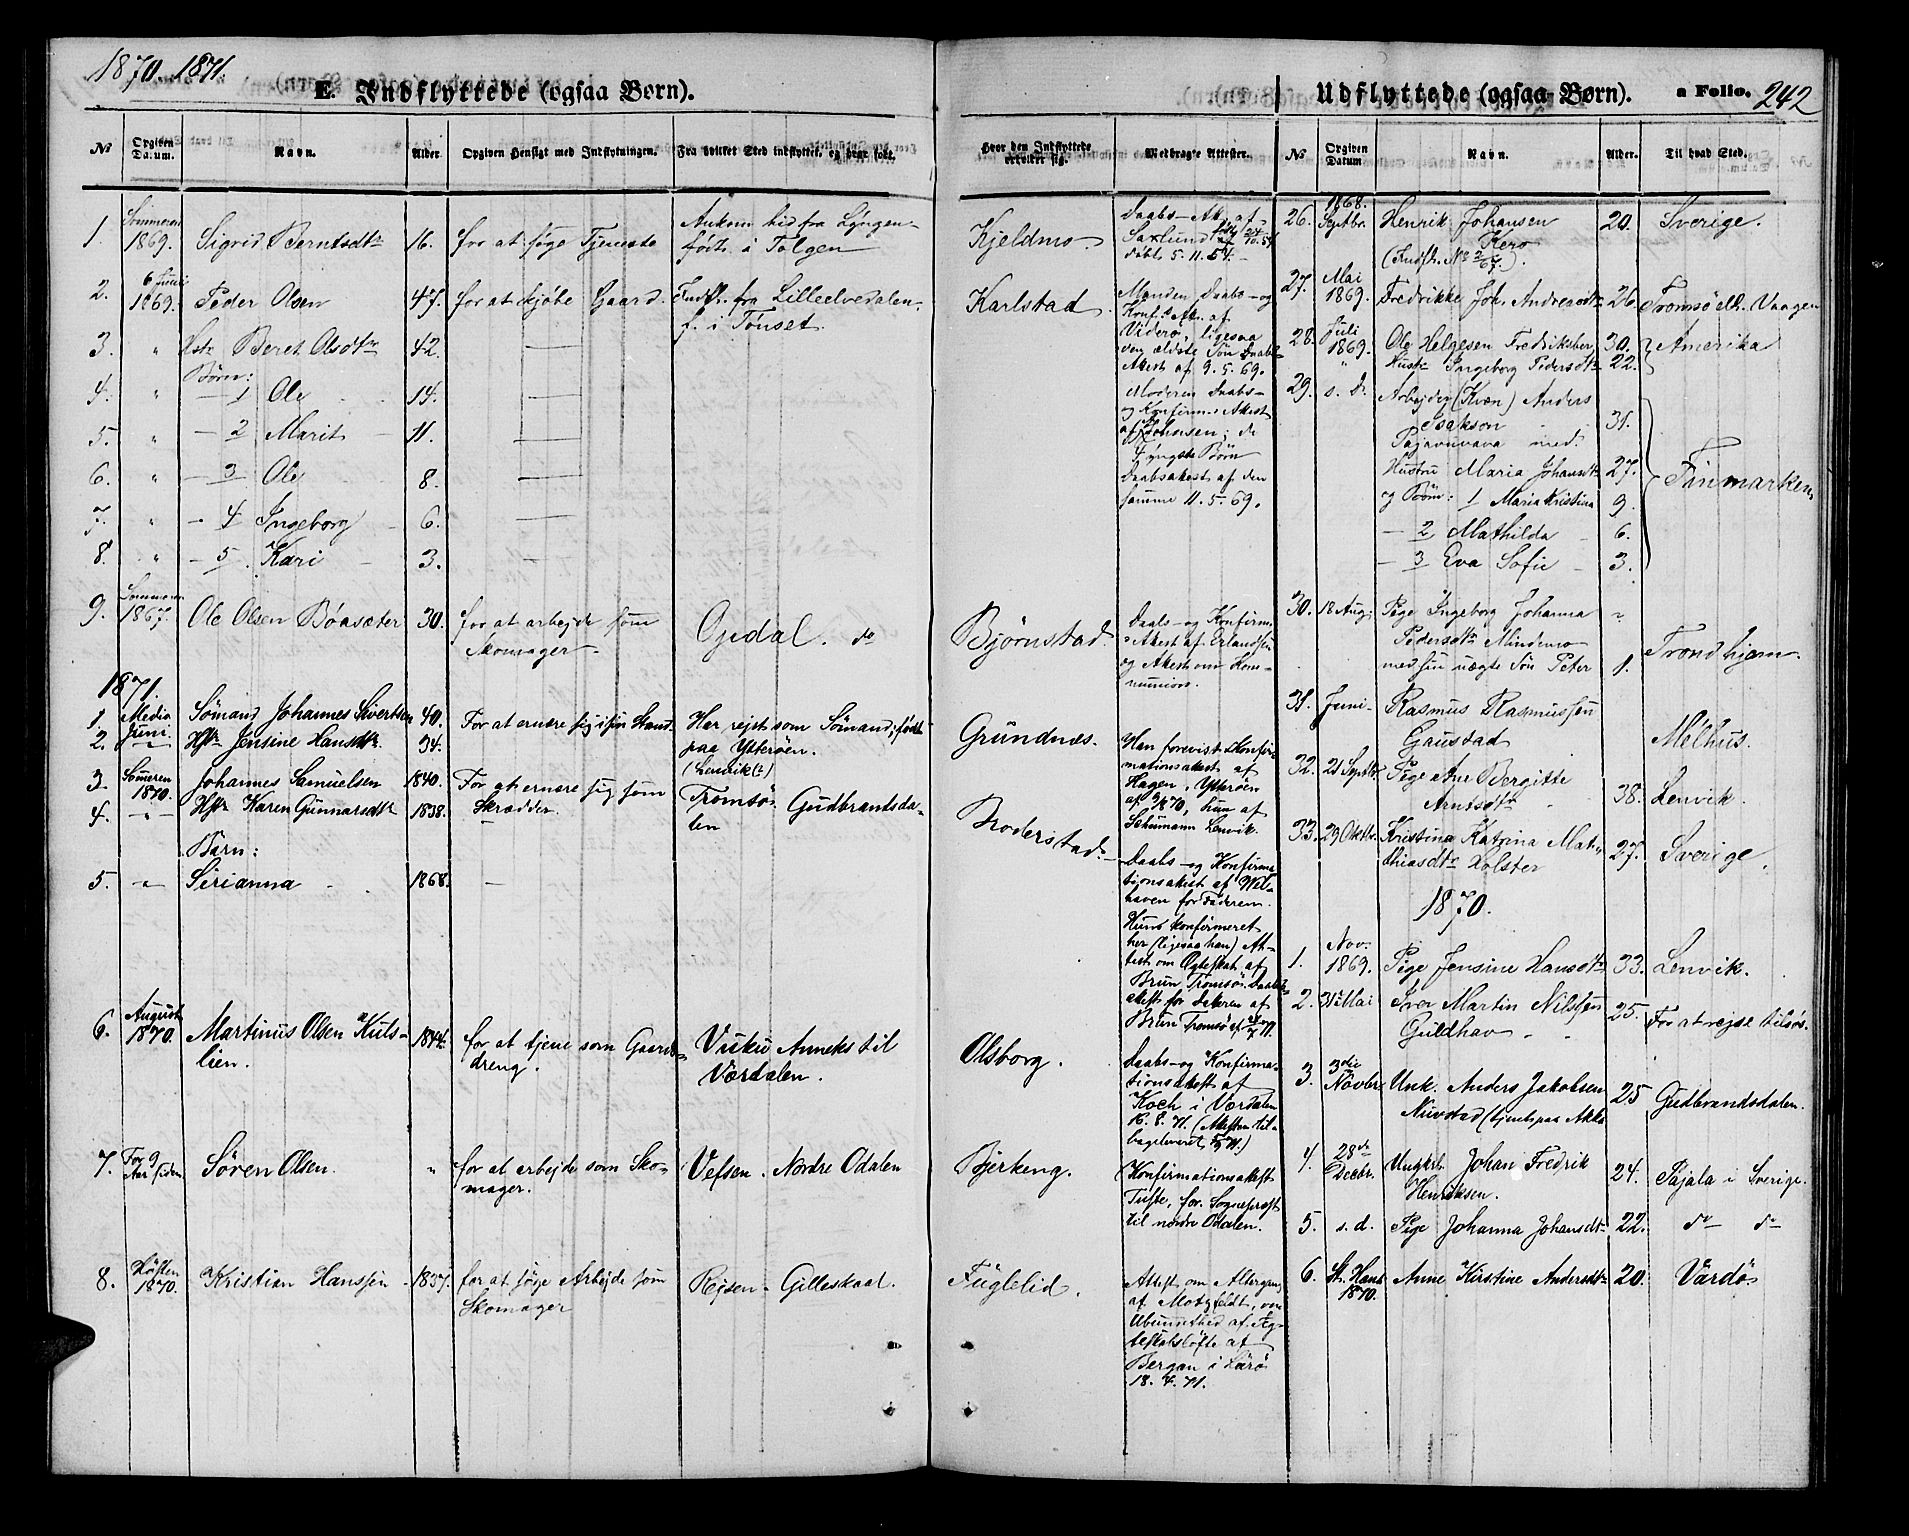 1870. 1871.
E. Indflyttede (ogsaa Børn).
No
Opgiven Datum.
Navn.
Alder
Opgiven Hensigt med Indflytningen.
Fra hvilket Sted indflyttet, og hvor født.
Hvor den Indflyttede
Medbragte Attester.
1
Sommeren 1869.
Sigrid Berntsdtr
16.
for at søge Tjeneste
Ankom hid fra Lyngen
født i Tolgen
Kjeldmo.
Daabs-At. af
Saxlund
døbt 5.11.54.
2.
6 Juni 1869.
Peder Olsen
47.
for at kjøbe Gaard.
Indfl. fra Lilleelvedalen.
f. i Tønset.
Karlstad.
Manden Daabs- og
Konf. Att. af
Viderø, ligesaa
den ældste Søn Daabs-
Attest af 9.5.69.
Moderen Daabs-
og Konfirm. Attest
af Johnsen; de
4 yngste Børn
Daabsattest af den
samme 11.5.69.
3. " Hstr Beret Olsdtr 42.
Børn:
4. " 1 Ole 14.
5. " 2 Marit 11.
6. " 3 Ole 8.
7. " 4 Ingeborg 6.
8. " 5 Kari 3.
9.
Sommeren 1867.
Ole Olsen Böasæter
30.
for at arbejde som
Skomager.
Opdal. do
Bjørnstad.
Daabs- og Konfirm.
Attest af Erlandsen
og Attest om Kom-
munion.
1871.
1.
Medio Juni.
Sømand Johannes Sivertsen
40.
For at ernære sig i sin Stand.
Her rejst som Sømand; født
paa Ytterøen.
Grundnæs.
2. Hstr Jensine Hansdtr. 34.
(Lenvik(?)
Han forevist Konfir-
mationsattest af
Hagen, Ytterøen
hun af
Schumann Lenvik.
3.
Someren 1870.
Johannes Samuelsen
1840.
For at ernære sig som
Skrædder.
Tromsø. Gudbrandsda-
len
Moderstad.
4. Hstr Karen Gunnarsdtr 1838.
Daabs- og Konfirma-
tionsattest af Wil-
haven for Faderen.
Hun konfirmeret
her (ligesaa han) At-
test om Ægteskab af
Brun Tromsø. Daabs-
attest for Datteren af
Brun Tromsø
Barn:
5. Serianna 1868.
6.
August 1870.
Martinus Olsen Kuls-
lien.
1844.
for at tjene som Gaards-
dreng.
Vuku Anneks til
Værdalen.
Olsborg.
Daabs- og Konfirma-
tionsattest af
Koch i Værdalen
16.8.71. (Attesten til-
bageleveret
7.
For 9 Aar siden
Søren Olsen.
"
for at arbejde som Sko-
mager.
Vefsen. Nordre Odalen
Bjerkeng.
Konfirmationsattest
Tufte, for. Sognepræst
til nordre Odalen.
8.
Høsten 1870.
Kristian Hanssen
1837.
for at søge Arbejde som
Skomager
Rejsen. Gilleskaal.
Fuglelid.
Attest om Altergang
af Motzfeldt, om
Ubundethed af Æg-
teskabsløfte af
Bergan i Karlsø
18.4.71.
Udflyttede (ogsaa Børn).
a Folio. 242
No
Opgiven Datum
Navn.
Alder.
Til hvad Sted.
26.
1868. Septbr.
Henrik Johansen
Kero
20.
Sverige.
27.
Mai 1869.
Fredrikke Joh. Andreasdtr
26.
Tromsø ell. Vaagen
28.
Juli 1869.
Ole Helgesen Fredriksber
30.
Amerika
" Hustr Ingeborg Pedersdtr 22.
29.
s. d.
Arbejder (Kvæn) Anders
Isakson
31.
med
Hustru Maria Johansdtr 27.
Finmarken
og Børn: 1 Maria Kristina 9.
2 Mathilda 6.
3 Eva Sofie 3.
30.
18 Aug.
Pige Ingeborg Johanna
Pedersdtr Mindemo
med sin uægte Søn Peter
1.
Trondhjem.
31.
Juni
Rasmus Rasmussen
Gaustad
Melhus.
32.
21 Septbr.
Pige Ane Bergitte
Arntsdtr
38.
Lenvik.
33.
29 Oktbr.
Kristina Katrina Mat-
thiasdtr Holster
27.
Sverige.
1870.
1.
Nov. 1869.
Pige Jensine Hansdtr
33.
Lenvik.
2.
31 Mai
Martin Nilssen
Guldhav
25.
For at rejse tilsøs.
3.
3die Novbr.
Unk. Anders Jakobsen
Nuvstad
25
Gudbrandsdalen.
4.
28de Decbr.
Ungkl. Johan Fredrik
Henriksen.
24.
Pajala i Sverige.
5. s. d. Pige Johanna Johansdtr 22. do do
6.
St. Hans 1870.
Anne Kirstine Andersdtr
20.
Vardø.